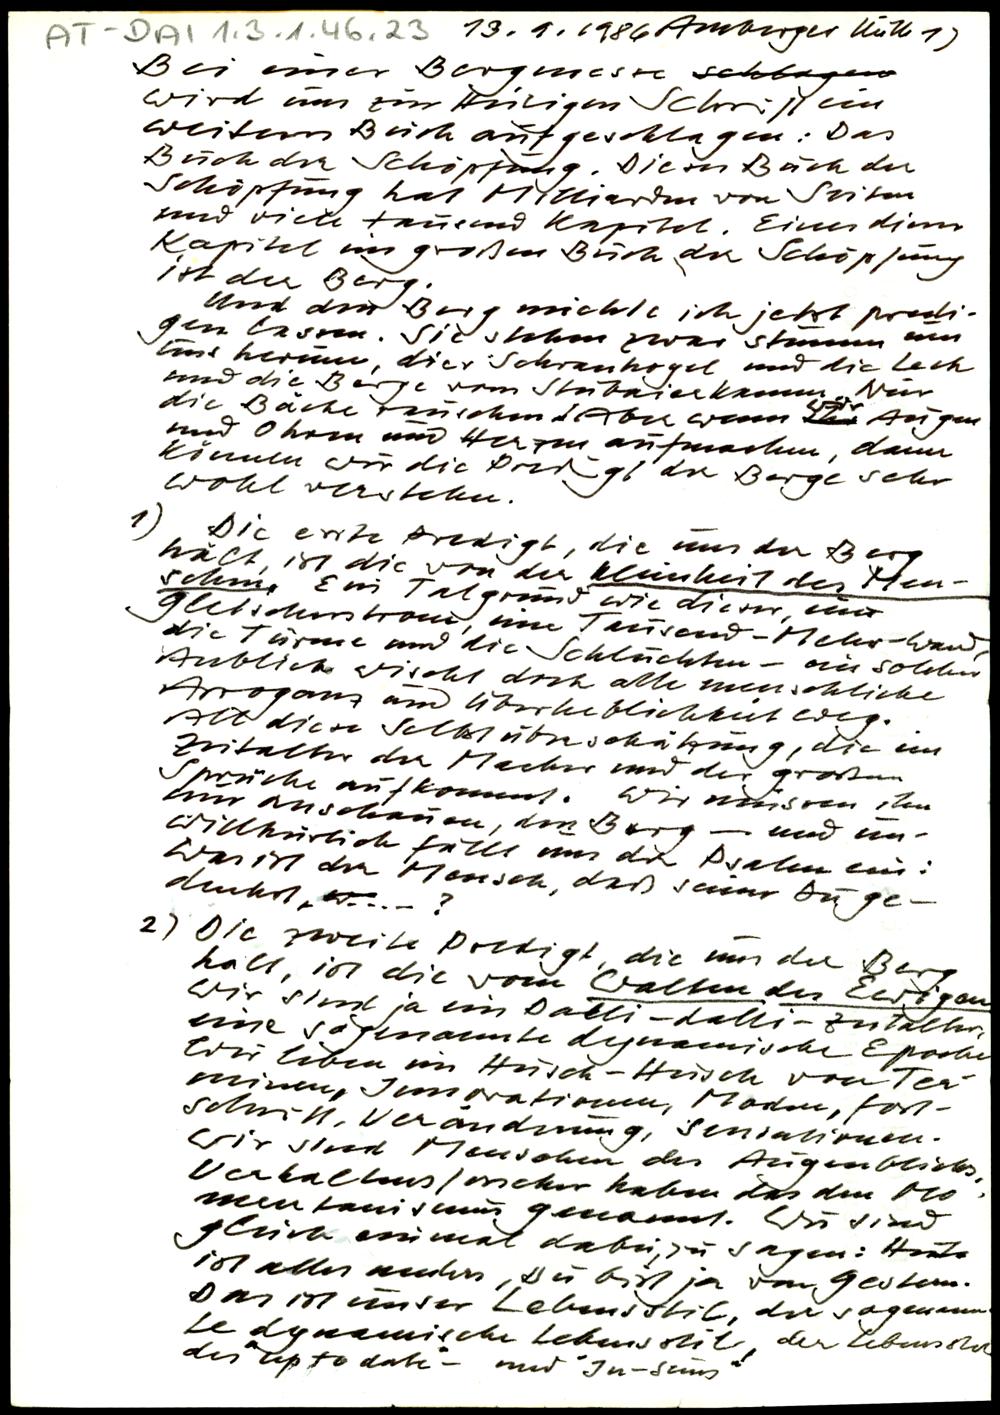 AT-DAI 1.3.1.46.23 13.9.1986 Amberger Hütte 1)
Bei einer Bergmesse schlagen
wird uns zur Heiligen Schrift ein
weiteres Buch aufgeschlagen: Das
Buch der Schöpfung. Dieses Buch der
Schöpfung hat Milliarden von Seiten
und viele tausend Kapitel. Eines dieser
Kapitel im großen Buch der Schöpfung
ist der Berg.
Und den Berg möchte ich jetzt predi-
gen lassen. Sie stehen zwar stumm um
uns herum, dieser Schrankogel und die Leck
und die Berge vom Stubaierkamm. Nur
die Bäche rauschen. Aber wenn wir Augen
und Ohren und Herzen aufmachen, dann
können wir die Predigt der Berge sehr
wohl verstehen.
1) Die erste Predigt, die uns der Berg
hält, ist die von der Kleinheit des Men-
schen. Ein Talgrund wie dieser, ein
Gletscherstrom, eine Tausend-Meter-Wand,
die Türme und die Schluchten – ein solcher
Anblick wischt doch alle menschliche
Arroganz und Überheblichkeit weg.
All diese Selbstüberschätzung, die im
Zeitalter der Macher und der großen
Sprüche aufkommt. Wir müssen ihn
nur anschauen, den Berg – und un-
willkürlich fällt uns der Psalm ein:
Was ist der Mensch, daß seiner Du ge-
denkst, ....?
2) Die zweite Predigt, die uns der Berg
hält, ist die vom Walten des Ewigen
Wir sind ja ein Dalli-dalli-Zeitalter,
eine sogenannte dynamische Epoche
Wir leben im Husch-Husch von Ter-
minen, Innovationen, Moden, Fort-
schritt, Veränderung, Sensationen.
Wir sind Menschen des Augenblicks.
Verhaltensforscher haben das den Mo-
mentanismus genannt. Wir sind
gleich einmal dabei, zu sagen: Heute
ist alles anders, Du bist ja von gestern.
Das ist unser Lebensstil, der sogenann-
te dynamische Lebensstil, der Lebensstil
des "up to date"- und "In-seins"